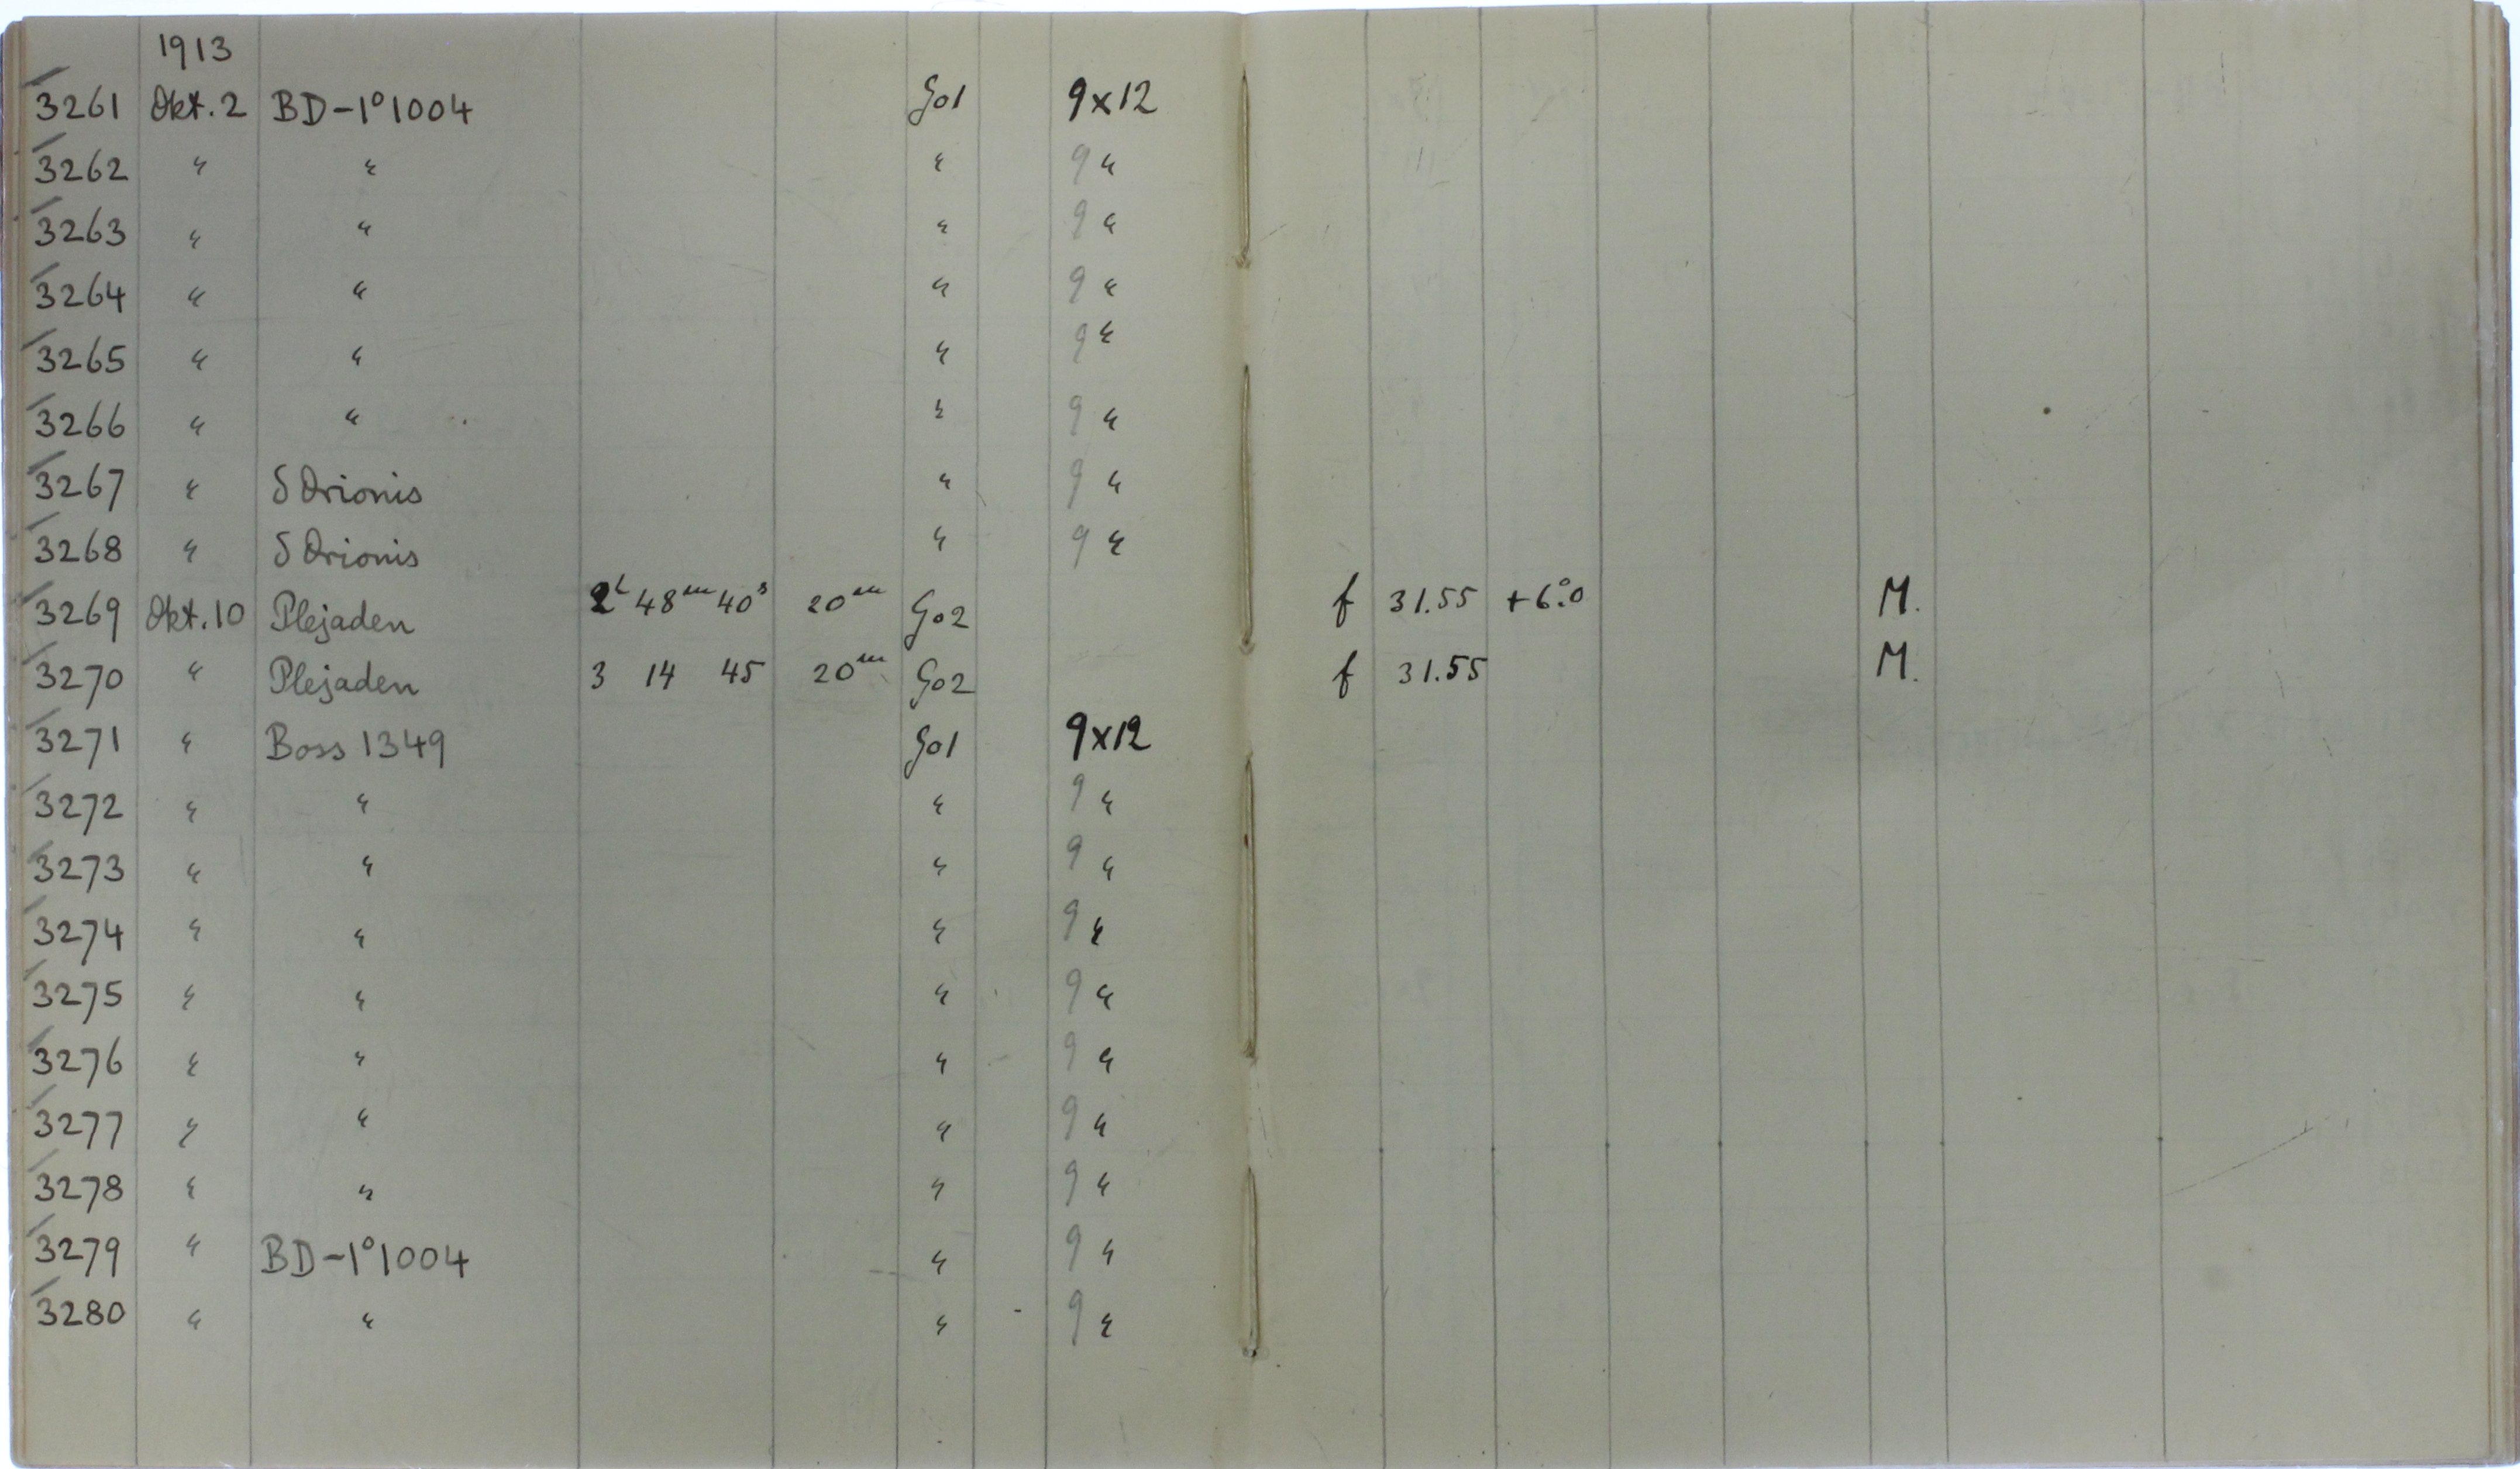 1913
3261 Okt. 2 BD -1°1004 Go1 9x12
3262 " " " 9 "
3263 " " " 9 "
3264 " " " 9 "
3265 " " " 9 "
3266 " " " 9 "
3267 " δ Orionis " 9 "
3268 " δ Orionis " 9 "
3269 Okt. 10 Plejaden 2h 48m 40s 20m Go2 f 31.55 +6°.0 M.
3270 " Plejaden 3 14 45 20m Go2 f 31.55 M.
3271 " Boss 1349 Go1 9x12
3272 " " " 9 "
3273 " " " 9 "
3274 " " " 9 "
3275 " " " 9 "
3276 " " " 9 "
3277 " " " 9 "
3278 " " " 9 "
3279 " BD -1°1004 " 9 "
3280 " " " 9 "